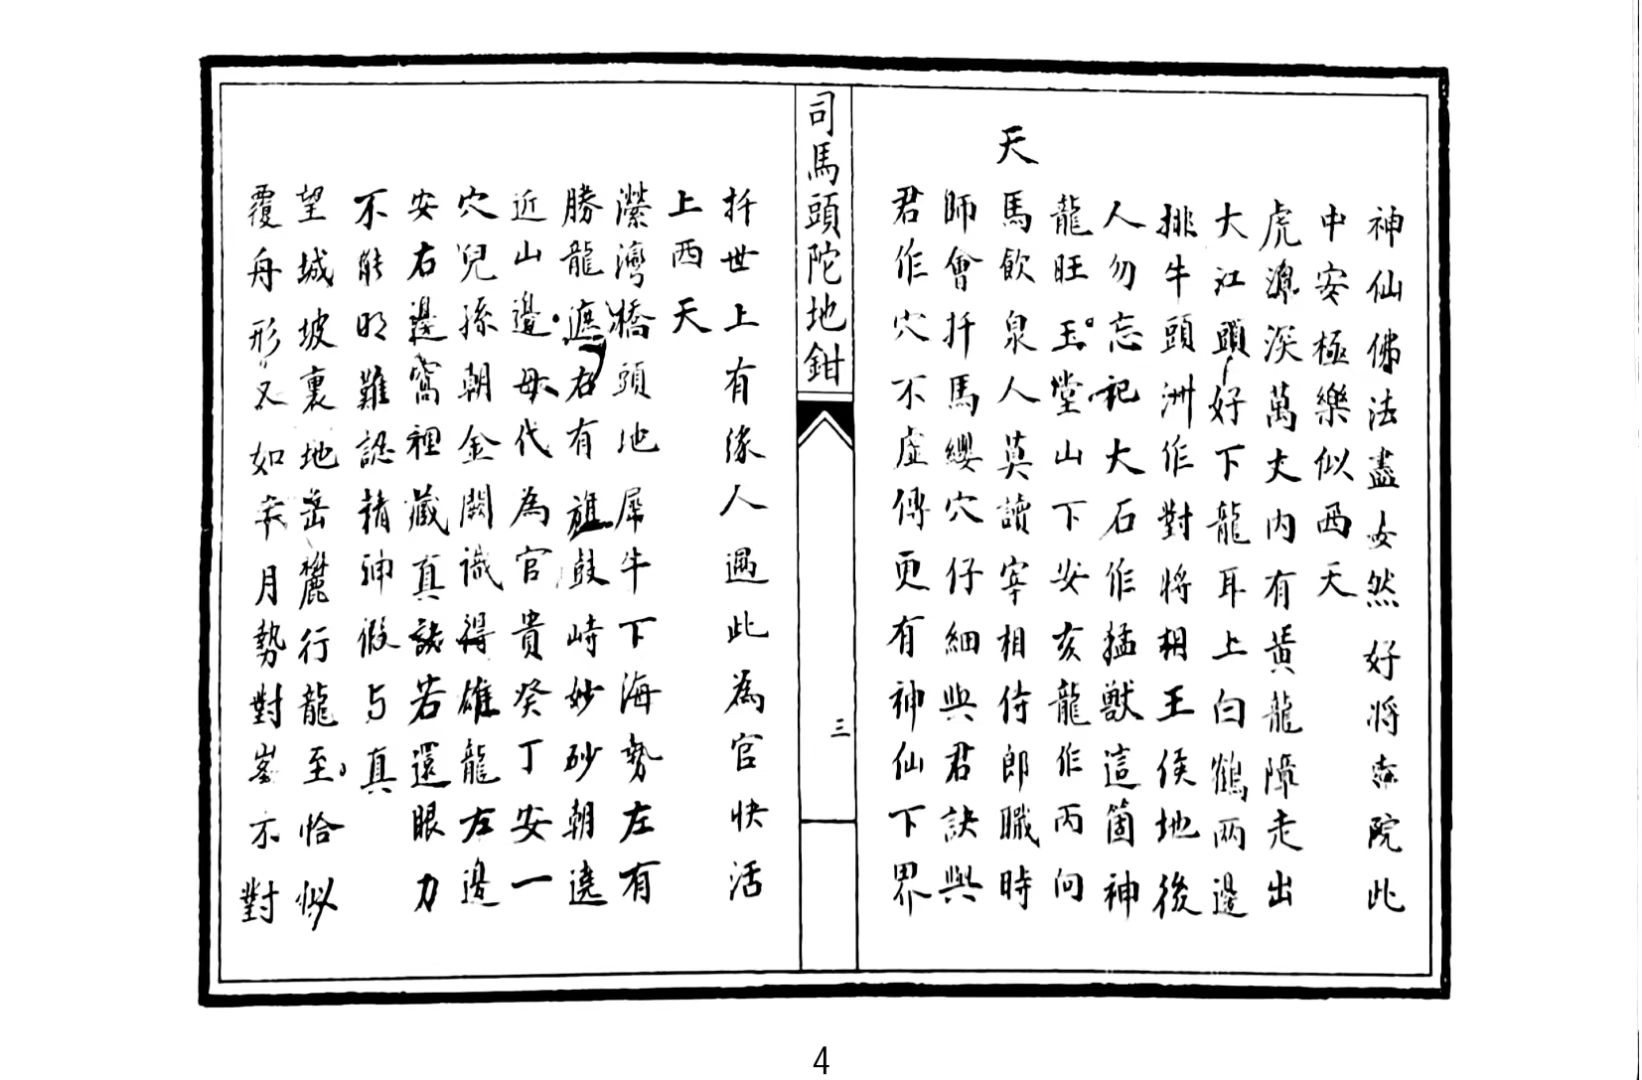 神仙佛法盡安然好將寺院此
中安極樂似西天
虎源溪萬丈內有黃龍障走出
大江頭好下龍耳上白鶴兩邊
排牛頭洲作對將相王侯地後
人勿忘記大石作猛獸這箇神
龍旺玉堂山下安亥龍作丙向
天
馬飲泉人莫讀宰相侍郎職時
師會扦馬纓穴仔細與君訣與
君作穴不虛傳更有神仙下界
司馬頭陀地鉗
三
扦世上有緣人遇此為官快活
上西天
濚灣橋頭地犀牛下海勢左有
勝龍遮右有旗鼓峙妙砂朝遶
近山邊毋代為官貴癸丁安一
穴兒孫朝金闕識得雄龍左邊
安右邊窩裡藏真訣若還眼力
不能明難認精神假与真
望城坡裏地岳麓行龍至恰似
覆舟形又如 月勢對峯亦對
4